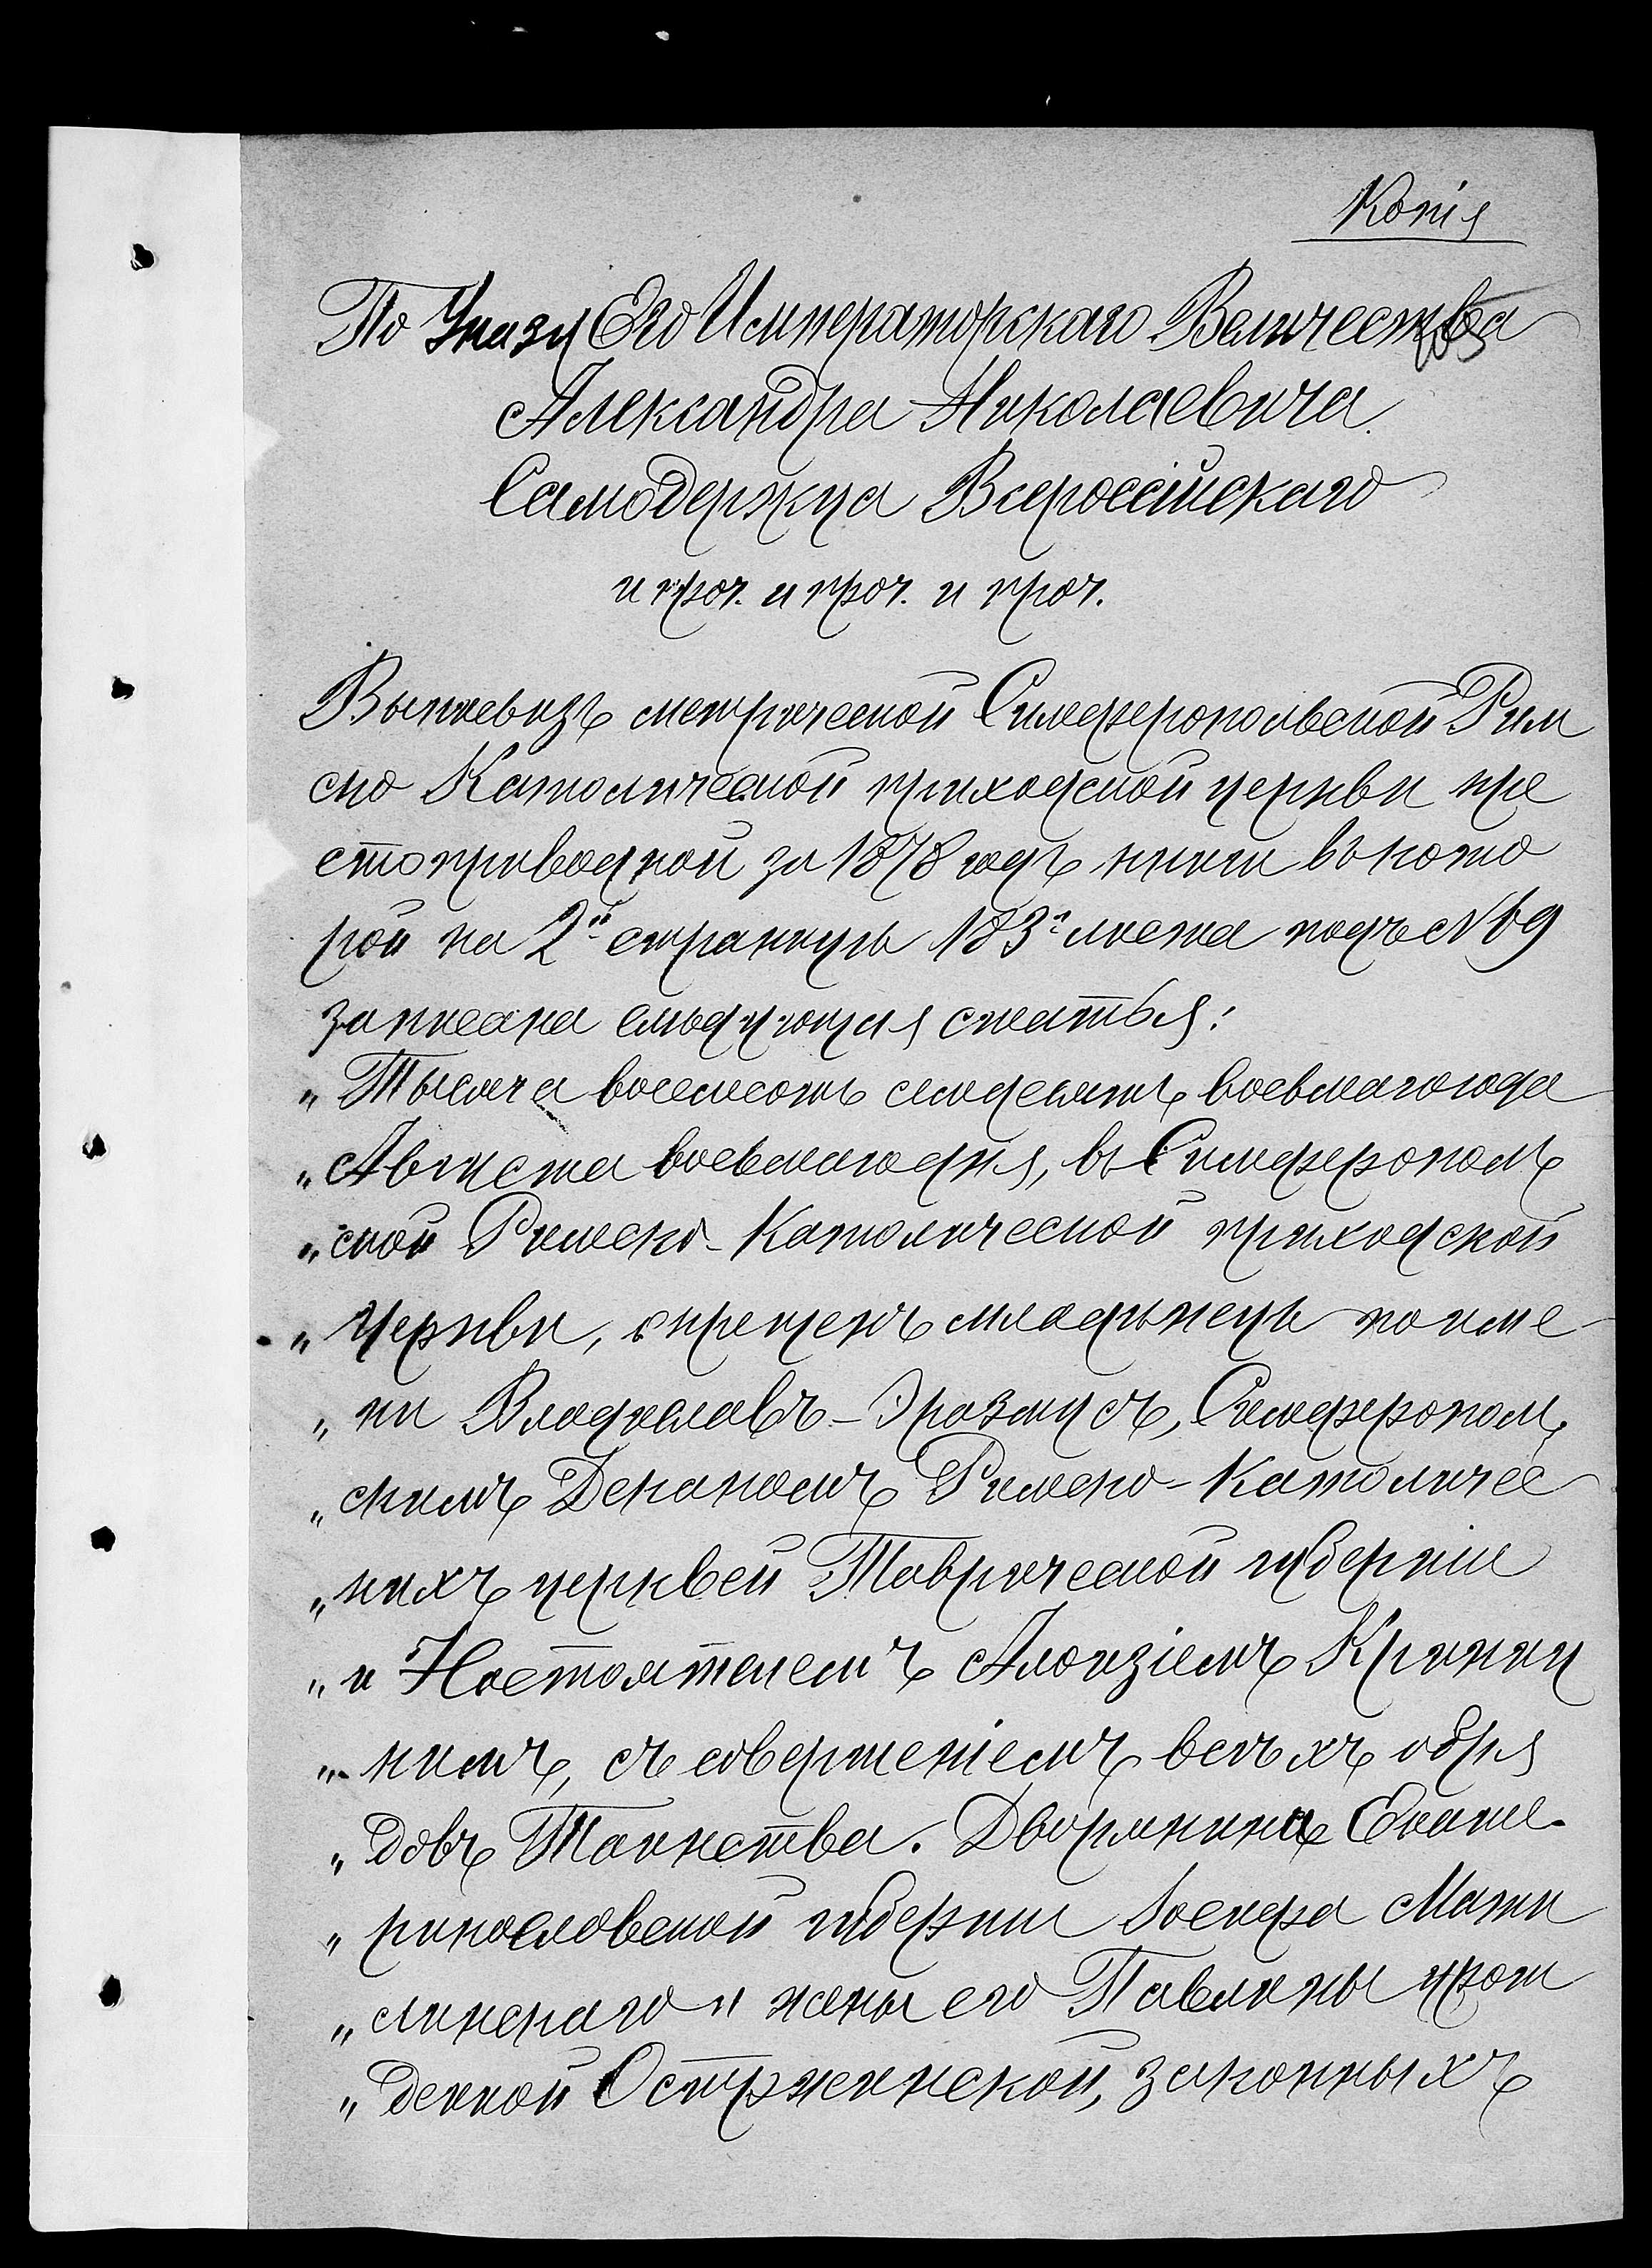 Копія
По Указу Его Императорскаго Величества
Александра Николаевича
Самодержца Всероссійскаго
и проч. и проч. и проч.
Выпись изъ метрической Симферопольской Рим
ско Католической приходской церкви кре
стоприводной за 1878 годъ книги въ кото
рой на 2й страницѣ 183го листа подъ № 69
записана слѣдующая статья:
„Тысяча восемсотъ семдесятъ восьмаго года
„Августа восьмаго дня, въ Симферополь
„ской Римско-Католической приходской
„церкви, окрещенъ младѣнецъ по име
„ни Владиславъ-Эразмусъ, Симферополь
„скимъ Деканомъ Римско-Католичес
„кихъ церквей Таврической губерніи
„и Настоятелемъ Алоизіемъ Криниц
„кимъ, съ совершеніемъ всѣхъ обря
„довъ Таинства. Дворянина Екате-
„ринославской губерніи Іосифа Матш
„линскаго и жены его Павлины урож
„денной Остржинской, законныхъ